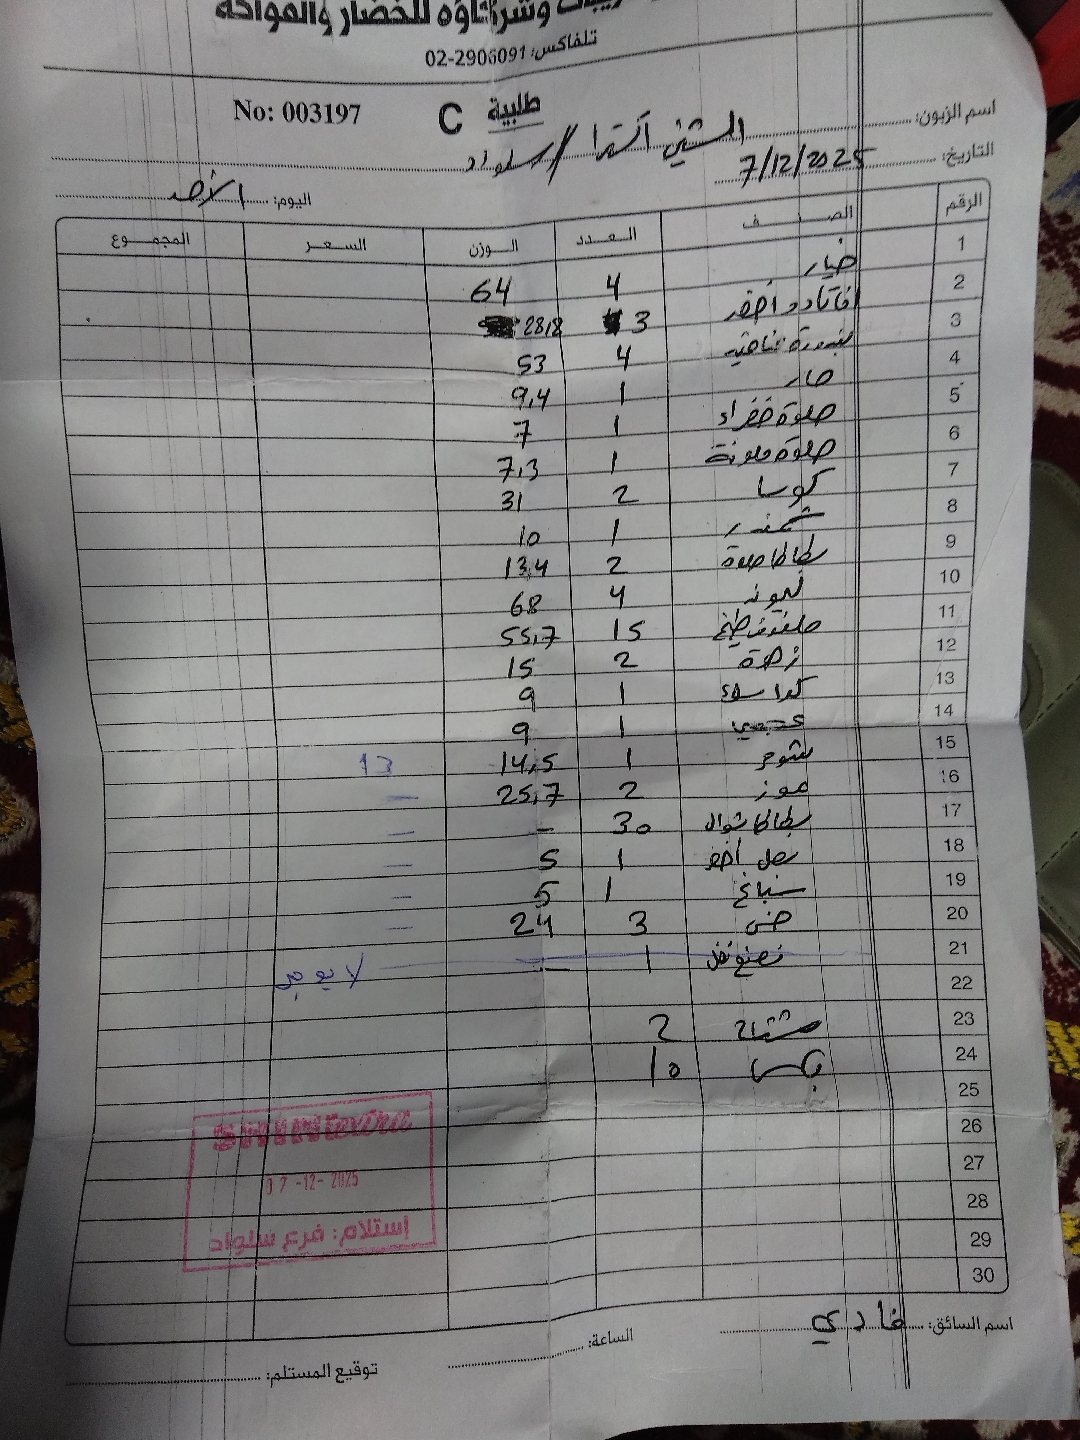 وشركاؤه للخضار والفواكه
تلفاكس: 02-2906091
No: 003197 C طلبية
اسم الزبون: الشني اكسترا / سلواد
التاريخ: 7/12/2025
اليوم: الأحد
الرقم الصنف العدد الوزن السعر المجموع
1 خيار 4 64
2 افاكادو أخضر 3 28,8
3 بندورة عناقيد 4 53
4 حار 1 9,4
5 حلوة خضراء 1 7
6 حلوة ملونة 1 7,3
7 كوسا 2 31
8 شمندر 1 10
9 بطاطا حلوة 2 13,4
10 ليمون 4 68
11 ملفوف طبخ 15 55,7
12 زهرة 2 15
13 1 9
14 عجمي 1 9
15 شومر 1 14,5 13
16 موز 2 25,7
17 بطاطا شوال 30 -
18 بصل أخضر 1 5
19 سبانخ 1 5
20 خس 3 24
21 نعنع 1 - لا يوجد
22
23 مشتاح 2
24 بكس 10
25
26
27
28
29
30
SHINI extra
07-12-2025
إستلام: فرع سلواد
اسم السائق: فادي
الساعة:
توقيع المستلم: